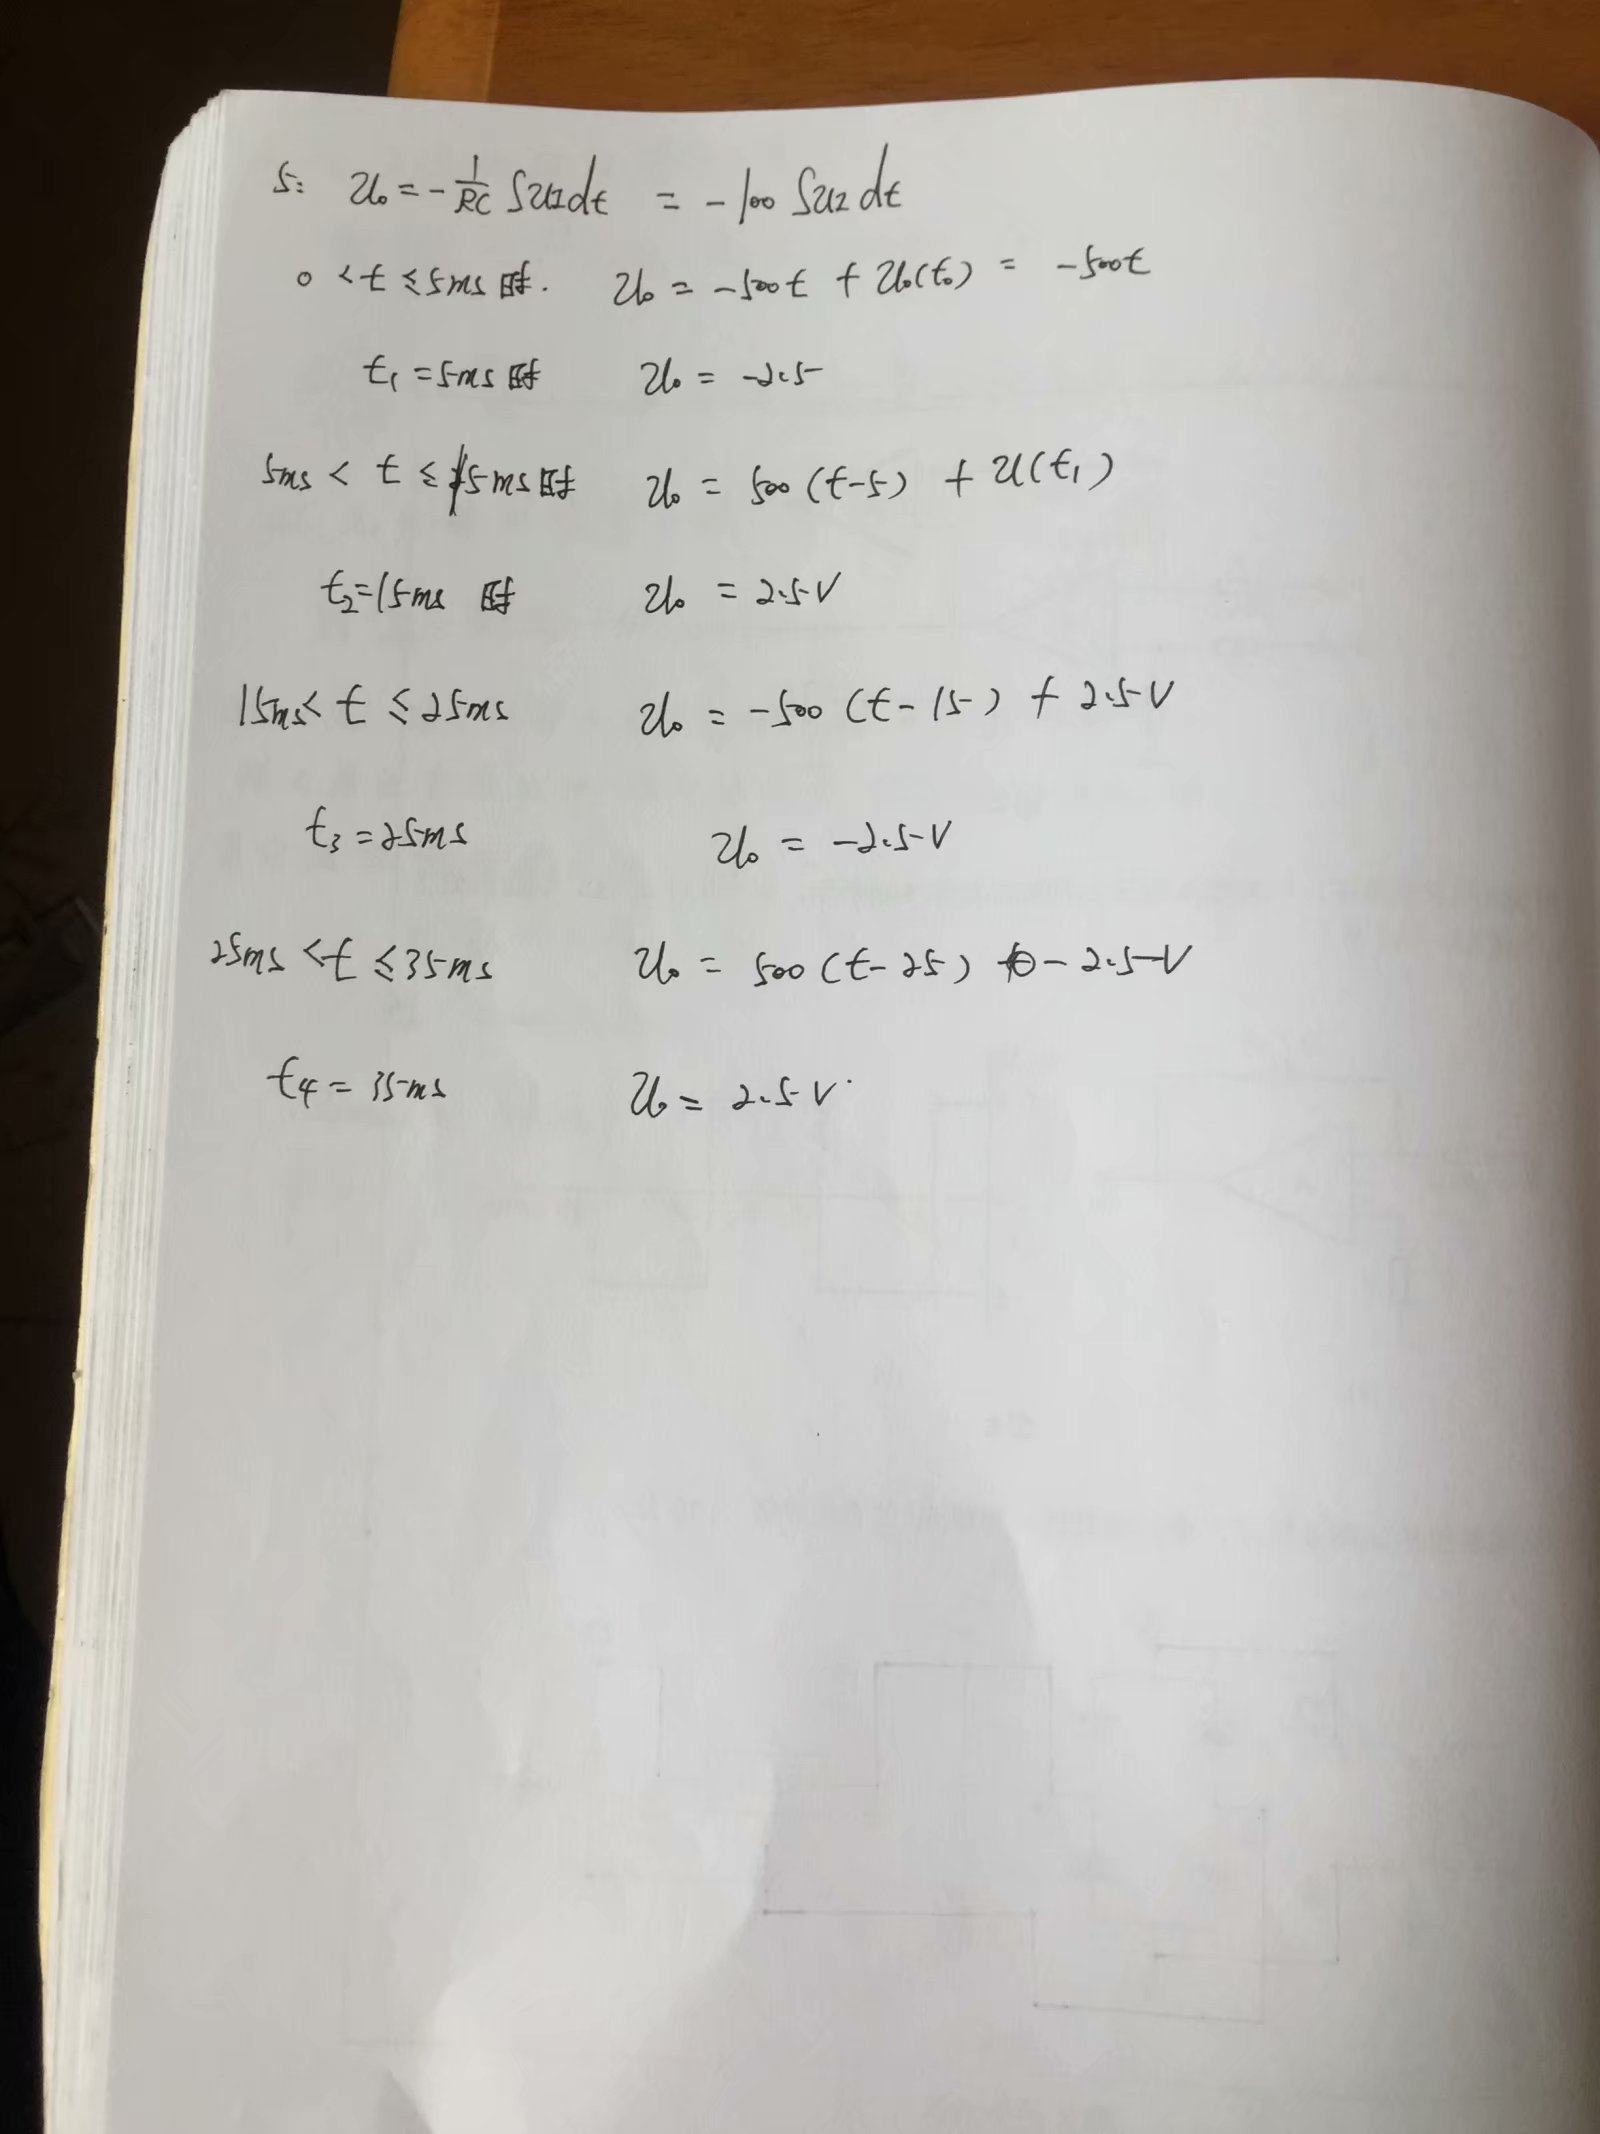 5: u₀ = -1/RC ∫u₂dt = -100 ∫u₂dt
0 < t ≤ 5ms 时. u₀ = -500t + u₀(t₀) = -500t
t₁ = 5ms 时 u₀ = -2.5
5ms < t ≤ 15ms 时 u₀ = 500 (t-5) + u(t₁)
t₂=15ms 时 u₀ = 2.5V
15ms < t ≤ 25ms u₀ = -500 (t-15) + 2.5V
t₃ = 25ms u₀ = -2.5V
25ms < t ≤ 35ms u₀ = 500 (t-25) - 2.5V
t₄ = 35ms u₀ = 2.5V